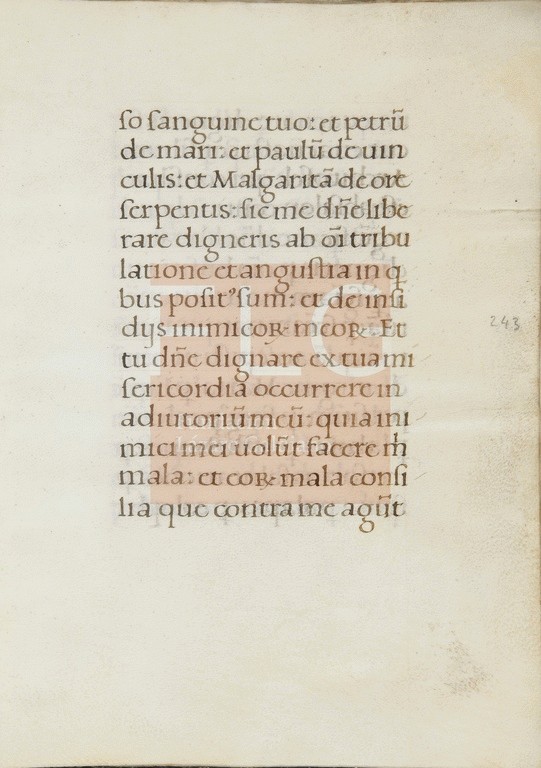 ſo ſanguine tuo: et petrū
de mari: et paulū de uin
culis: et Malgaritā de ore
ſerpentis: ſic me dn̄e libe
rare digneris ab oī tribu
latione et anguſtia in q̄
bus poſitꝰ ſum: et de inſi
dijs inimicoꝝ meoꝝ. Et
tu dn̄e dignare ex tua mi
ſericordia occurrere in
adiutoriū meū: quia ini
mici mei uolūt facere m̄
mala: et coꝝ mala conſi
lia que contra me agūt
243